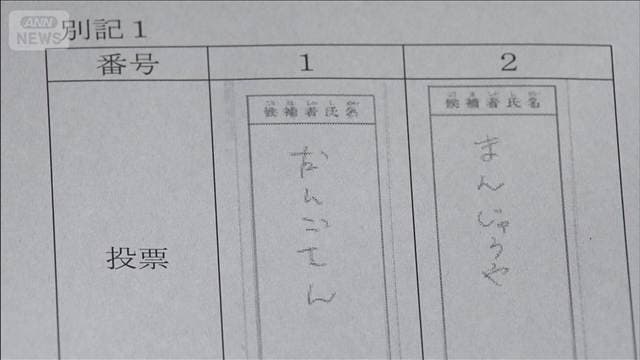 ANN NEWS
別記1
番号 1 2
候補者氏名 候補者氏名
投票
だんごさん
まんじゅうや